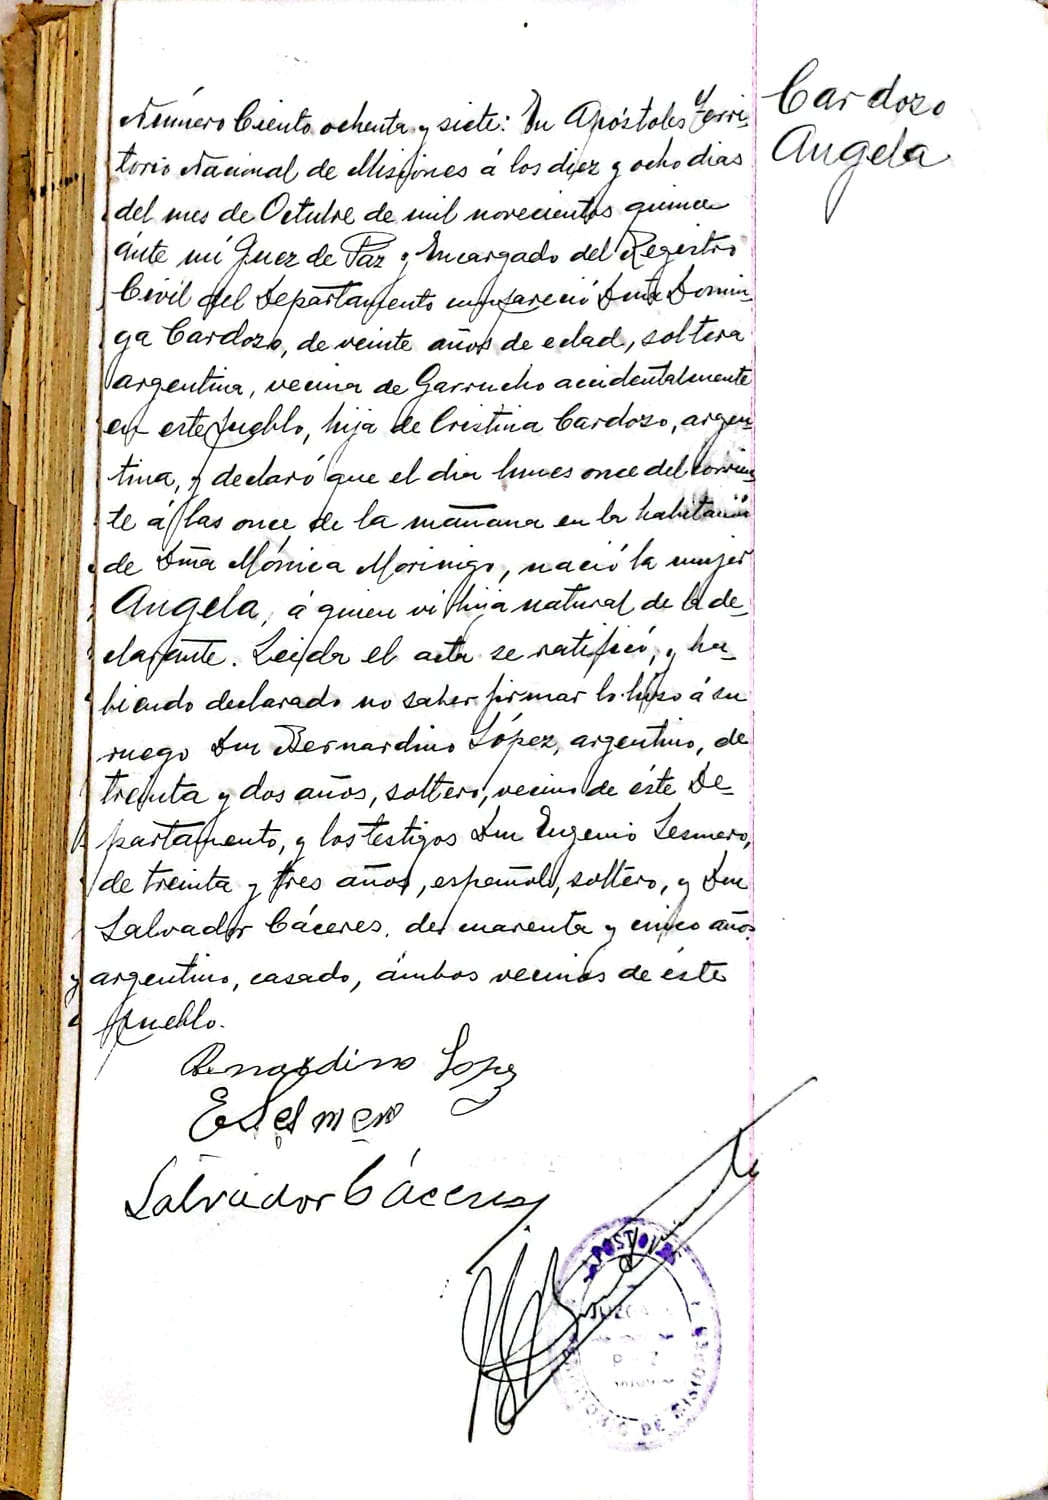 Cardozo
Angela
Número Ciento ochenta y siete: En Apóstoles Terri-
torio Nacional de Misiones á los diez y ocho dias
del mes de Octubre de mil novecientos quince
ánte mí Juez de Paz y Encargado del Registro
Civil del Departamento compareció Doña Domin-
ga Cardozo, de veinte años de edad, soltera
argentina, vecina de Garrucho accidentalmente
en este pueblo, hija de Cristina Cardozo, argen-
tina, y declaró que el dia lunes once del corrien-
te á las once de la mañana en la habitación
de Dña Mónica Morinigo, nació la mujer
Angela, á quien vi hija natural de la de-
clarante. Leida el acta se ratificó, y ha-
biendo declarado no saber firmar lo hizo á su
ruego Don Bernardino López, argentino, de
treinta y dos años, soltero, vecino de éste De-
partamento, y los testigos Don Eugenio Lesmero,
de treinta y tres años, español, soltero, y Don
Salvador Cáceres, de cuarenta y cinco años
argentino, casado, ámbos vecinos de éste
pueblo.
Bernardino Lopez
E Lesmero
Salvador Cáceres
APOSTOLES
JUZGADO
PAZ
TERRITORIO DE MISIONES